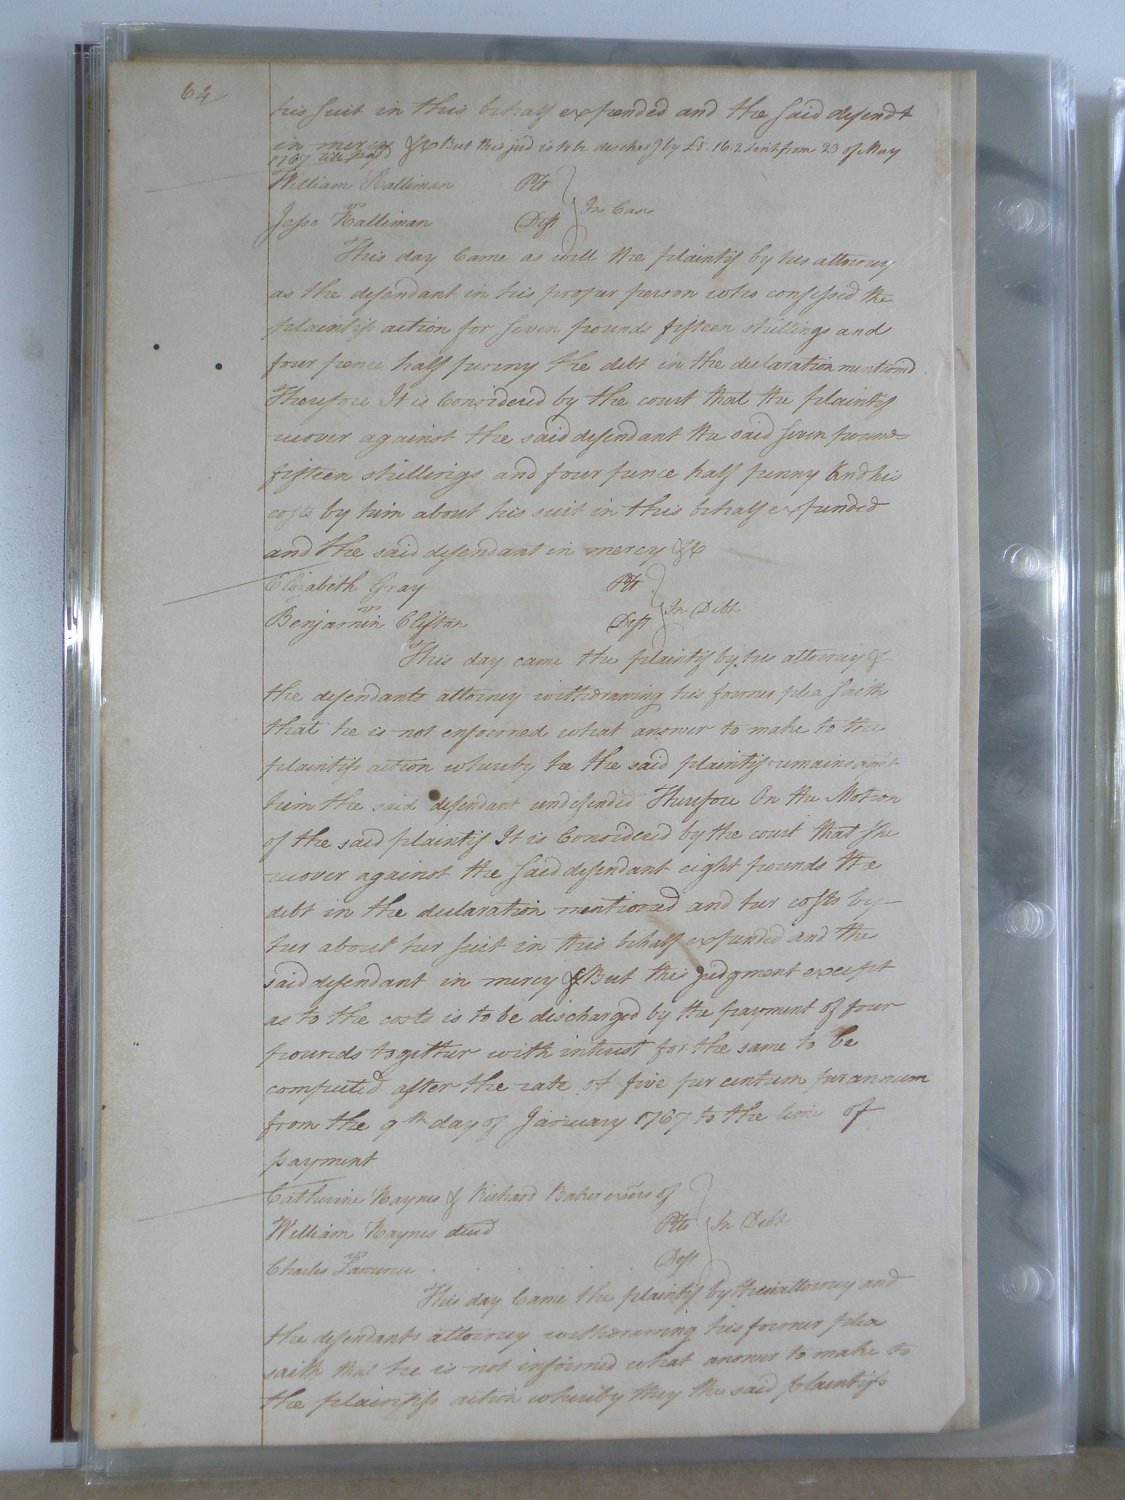 64
his suit in this behalf expended and the said defendt
in mercy &c But this jud is to be discharg'd by £3.16.2 with int from 23 of May
1767 till paid
William Halliman Plt
vs In Case
Jesse Halliman Deft
This day Came as will the plaintif by his attorney
as the defendant in his proper person who confessed the
plaintifs action for seven pounds fifteen shillings and
four pence half penny the debt in the declaration mentioned
Therefore It is Considered by the court that the plaintif
recover against the said defendant the said seven pounds
fifteen shillings and four pence half penny and his
costs by him about his suit in this behalf expended
and the said defendant in mercy &c
Elizabeth Gray Plt
vs In Debt
Benjamin Clifton Deft
This day came the plaintif by her attorney &
the defendants attorney withdrawing his former plea saith
that he is not enformed what answer to make to the
plaintifs action whereby he the said plaintif remains agst
him the said defendant undefended Therefore On the Motion
of the said plaintif It is Considered by the court that she
recover against the said defendant eight pounds the
debt in the declaration mentioned and her costs by
her about her suit in this behalf expended and the
said defendant in mercy & But this judgment except
as to the costs is to be discharged by the payment of four
pounds together with interest for the same to be
computed after the rate of five per centum per annum
from the 9th day of January 1767 to the time of
payment
Catherine Haynes & Richard Baker exors of
William Haynes decd Plts In Debt
vs
Charles Deft
This day Came the plaintif by their attorney and
the defendants attorney withdrawing his former plea
saith that he is not informed what answer to make to
the plaintifs action whereby they the said plaintifs